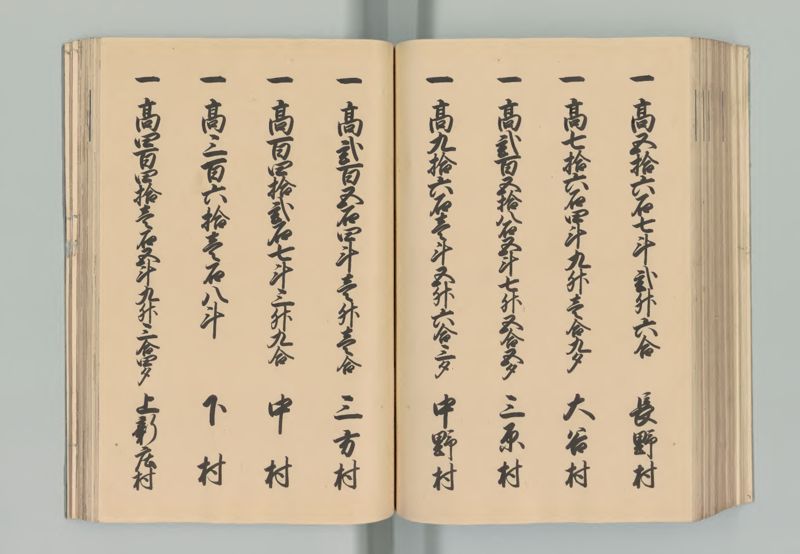 一 高五拾六石七斗弐升六合 長野村
一 高七拾六石四斗九升壱合九夕 大谷村
一 高弐百五拾八石五斗七升五合五夕 三原村
一 高九拾六石壱斗五升六合三夕 中野村
一 高弐百五石四斗壱升壱合 三方村
一 高百四拾弐石七斗三升九合 中村
一 高三百六拾壱石八斗 下村
一 高四百四拾壱石五斗九升三合四夕 上新庄村